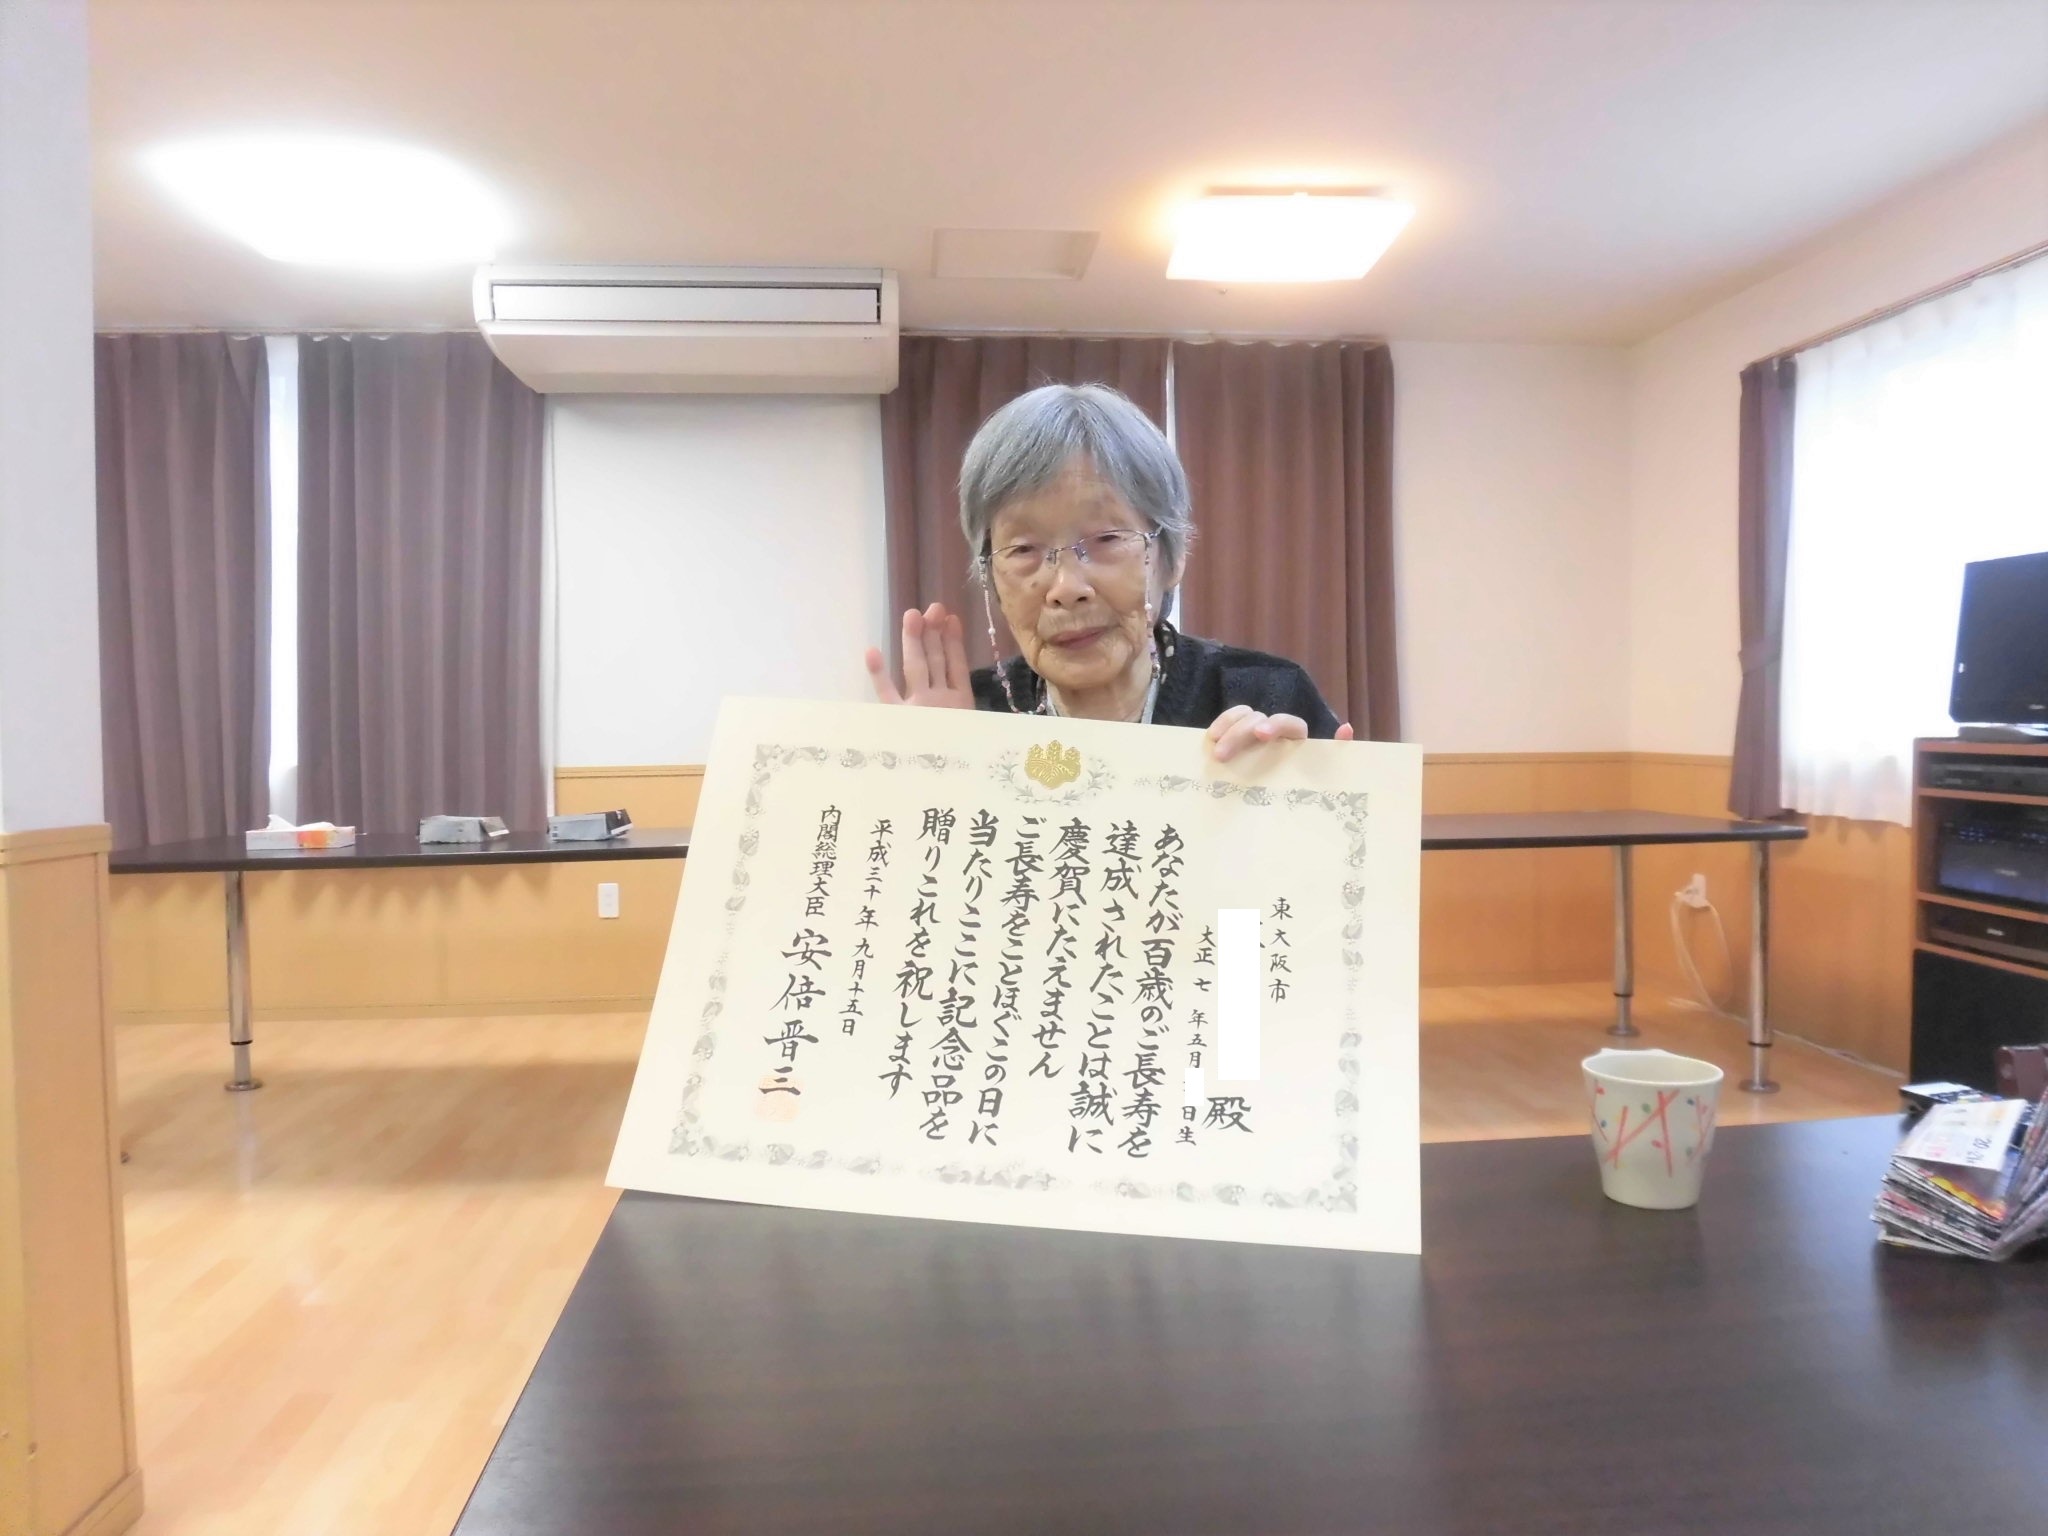 東大阪市
殿
大正七年五月
日生
あなたが百歳のご長寿を
達成されたことは誠に
慶賀にたえません
ご長寿をことほぐこの日に
当たりここに記念品を
贈りこれを祝します
平成三十年九月十五日
内閣総理大臣 安倍晋三